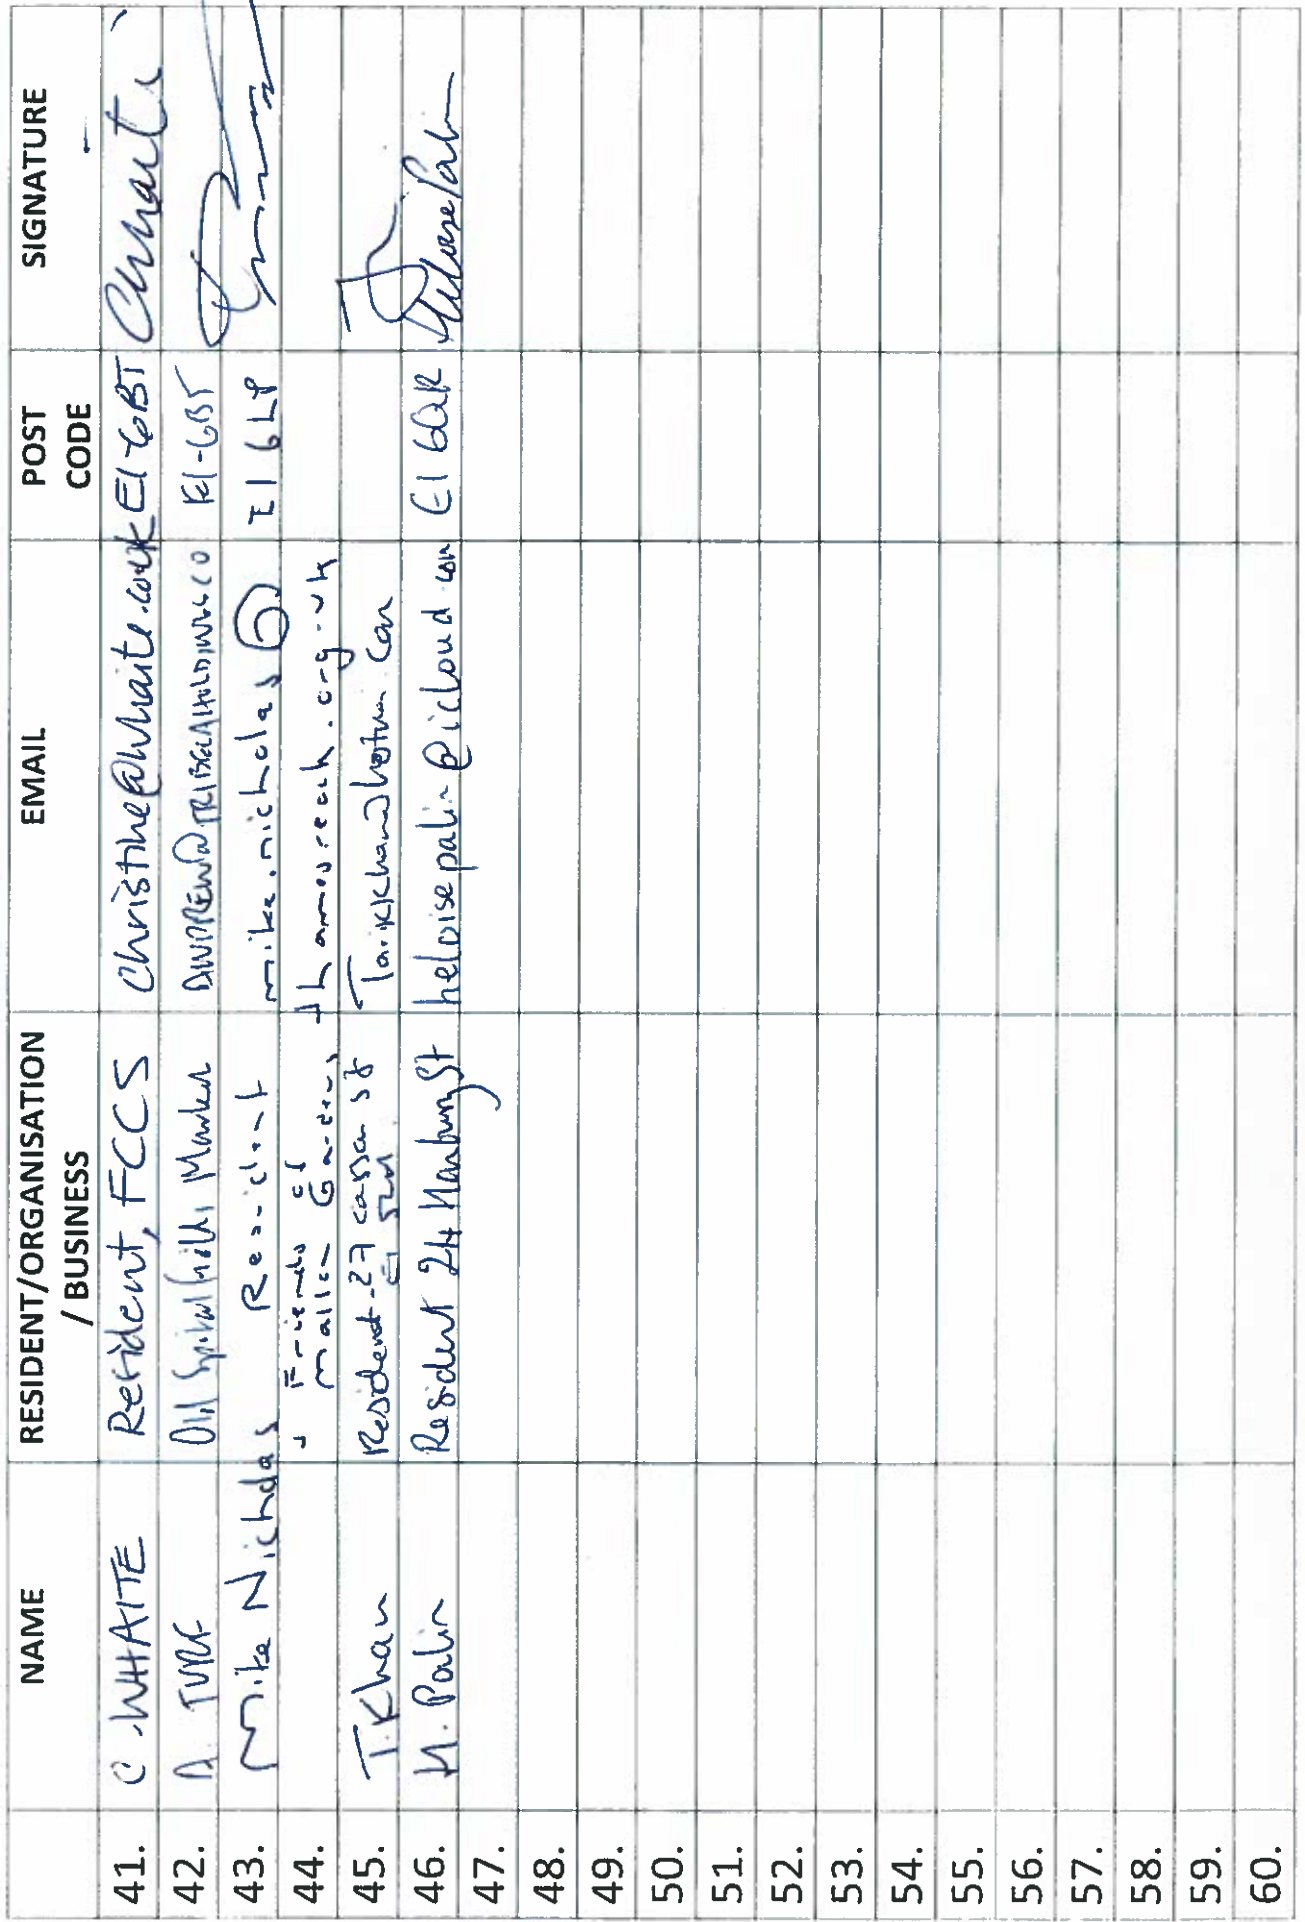 NAME RESIDENT/ORGANISATION / BUSINESS EMAIL POST CODE SIGNATURE
41. C. WHAITE Resident, FCCS christine@whaite.co.uk E1 6BT CWhaite
42. A. TURF Old Spitalfields Market E1-6BT
43. Mike Nicholas Resident mike.nicholas@ E1 6LP
44. + Friends of Mallon Gardens thamesreach.org.uk
45. T. Khan Resident - 27 St
46. H. Palin Resident 24 Hanbury St heloisepalin@icloud.com E1 6QR Heloise Palin
47.
48.
49.
50.
51.
52.
53.
54.
55.
56.
57.
58.
59.
60.